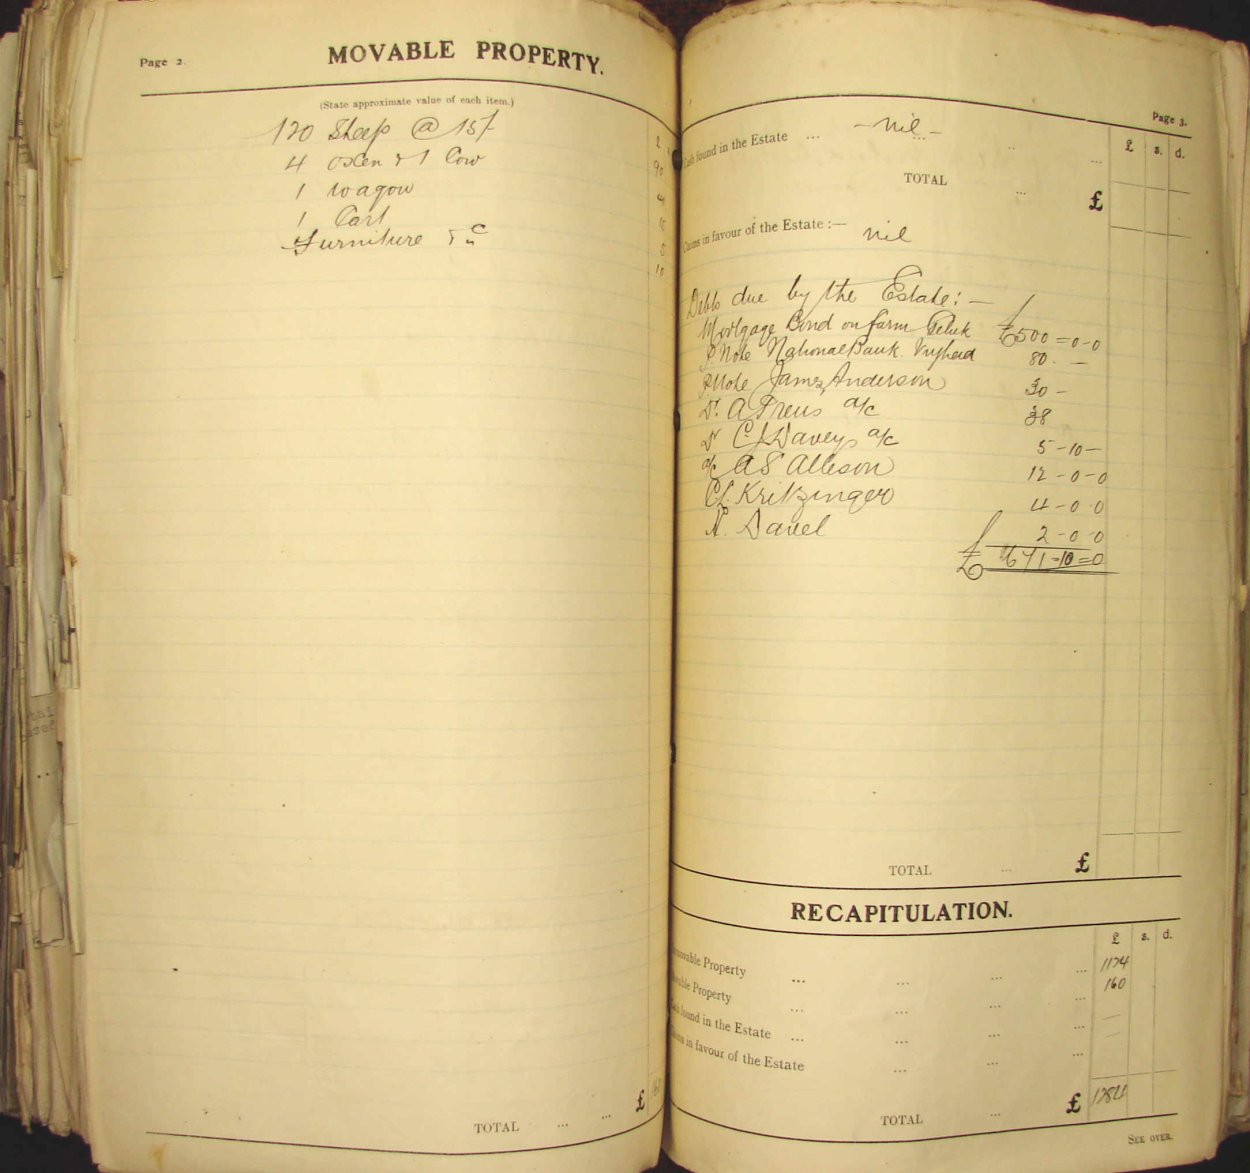 Page 2.
MOVABLE PROPERTY.
(State approximate value of each item.)
120 Sheep @ 15/ 90
4 oxen & 1 Cow
1 wagon
1 Cart 5
Furniture &c 10
TOTAL ... ... £
Page 3.
Cash found in the Estate ... - nil - ... ...
£ s. d.
TOTAL ... £
Claims in favour of the Estate :— nil
Debts due by the Estate: —
Mortgage Bond on farm £500=0-0
P Note National Bank Vryheid 80. —
P Note James Anderson 30 -
Dr. A Preus a/c 38
Dr C J Daveys a/c 5-10-
a/c A S Allison 12-0-0
C L. Kritzinger 4-0-0
N. Davel 2-0-0
£671-10=0
TOTAL ... £
RECAPITULATION.
£ s. d.
movable Property ... ... ... ... 1124
able Property ... ... ... ... 160
found in the Estate ... ... ... ...
in favour of the Estate ... ... ...
TOTAL ... £ 1284
SEE OVER.